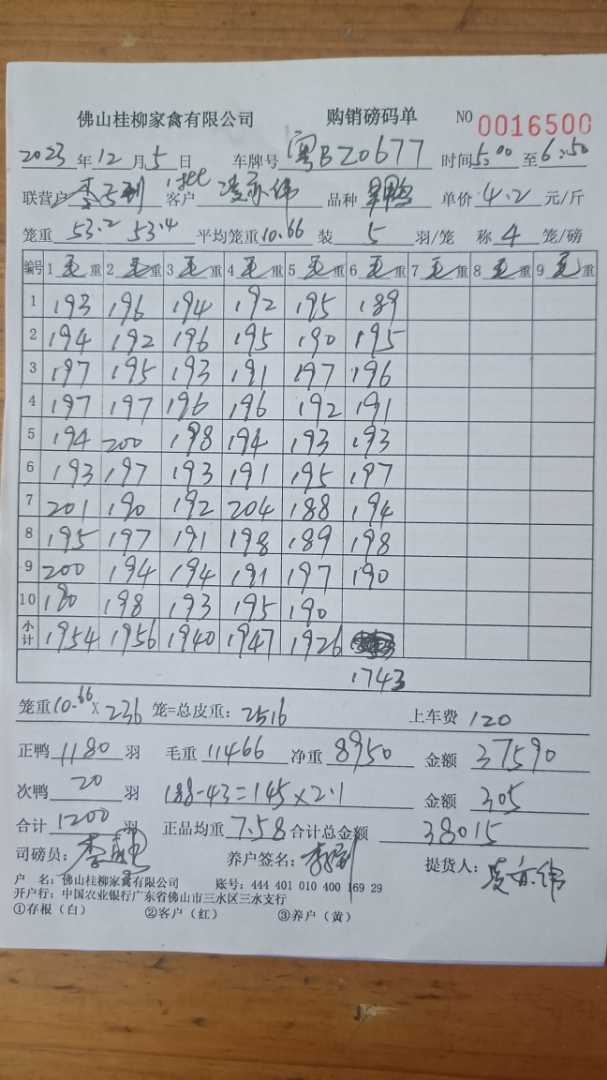 佛山桂柳家禽有限公司 购销磅码单 NO 0016500
2023年12月5日 车牌号 粤BZ0677 时间5:00至6:50
联营户 客户 凌亦伟 品种 单价4.2元/斤
笼重 53.2 53.4 平均笼重10.66 装 5 羽/笼 称 4 笼/磅
编号 1 毛重 2 毛重 3 毛重 4 毛重 5 毛重 6 毛重 7 毛重 8 毛重 9 毛重
1 193 196 194 192 195 189
2 194 192 196 195 190 195
3 197 195 193 191 197 196
4 197 197 196 196 192 191
5 194 200 198 194 193 193
6 193 197 193 191 195 197
7 201 190 192 204 188 194
8 195 197 191 198 189 198
9 200 194 194 191 197 190
10 190 198 193 195 190
小计 1954 1956 1940 1947 1926
1743
笼重10.66×236笼=总皮重：2516 上车费 120
正鸭 1180 羽 毛重 11466 净重 8950 金额 37590
次鸭 20 羽 188-43=145×2.1 金额 305
合计 1200 羽 正品均重 7.58 合计总金额 38015
司磅员： 养户签名： 提货人：凌亦伟
户 名：佛山桂柳家禽有限公司 账号：444 401 010 400 169 29
开户行：中国农业银行广东省佛山市三水区三水支行
①存根（白） ②客户（红） ③养户（黄）